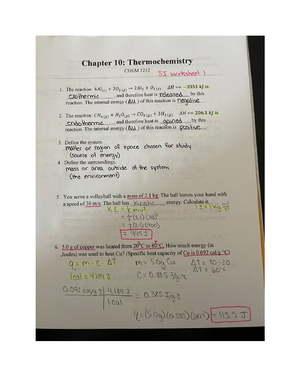 Chapter 10: Thermochemistry
CHEM 1212
SI worksheet 1
1. The reaction: 4Al(s) + 3O2(g) → 2Al2 + O3(s) ΔH = -3351 kJ is
exothermic and therefore heat is released by this
reaction. The internal energy (ΔU) of this reaction is negative
2. The reaction: CH4(g) + H2O(g) → CO(g) + 3H2 ΔH = 206.1 kJ is
endothermic and therefore heat is gained by this
reaction. The internal energy (ΔU) of this reaction is positive
3. Define the system
matter or region of space chosen for study
(source of energy)
4. Define the surroundings.
mass or area outside of the system
(the environment)
5. You serve a volleyball with a mass of 2.1 kg. The ball leaves your hand with
a speed of 30 m/s. The ball has kinetic energy. Calculate it.
= 945 J
6. 5.0 g of copper was heated from 20°C to 80°C. How much energy (in
Joules) was used to heat Cu? (Specific heat capacity of Cu is 0.092 cal/g °C)
q = m · c · ΔT m = 5.0g Cu ΔT = 80-20
1 cal = 4.184 J C = 0.385 J/g°C ΔT = 60°C
0.092 cal/g°C 4.184 J = 0.385 J/g
1 cal
q = (5.0g)(0.385)(60°) = 115.5 J